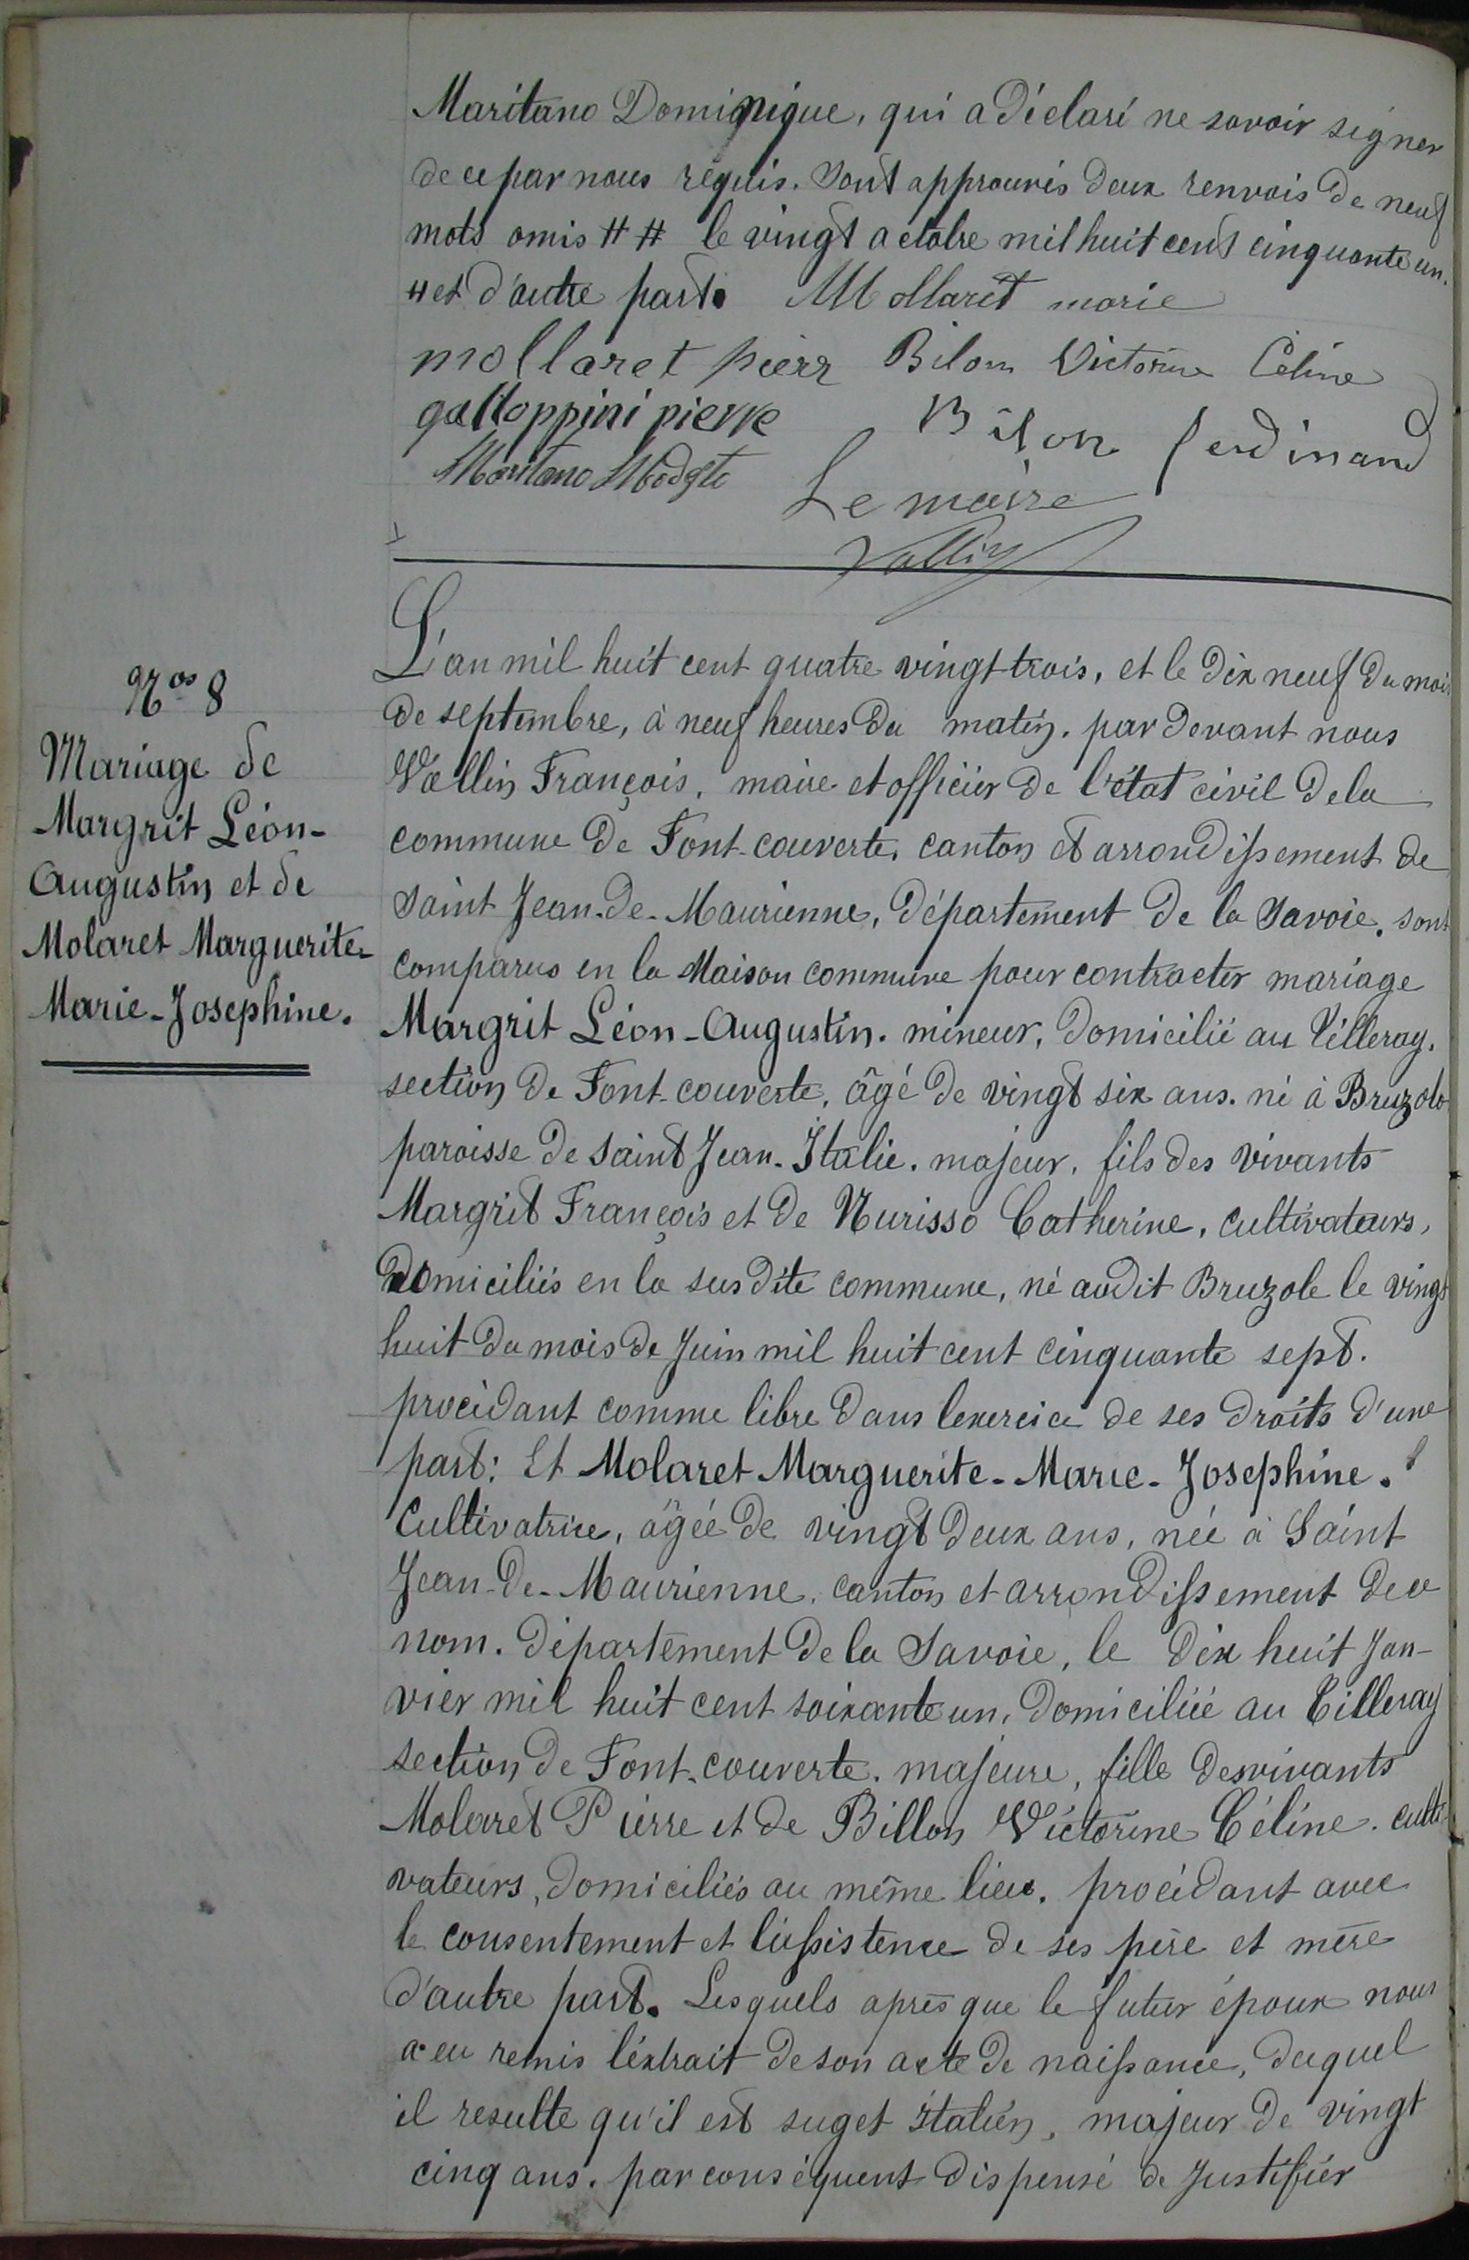 Maritano Dominique, qui a déclaré ne savoir signer
de ce par nous requis. Sont approuvés deux renvois de neuf
mots omis # # le vingt octobre mil huit cent cinquante un.
# et d'autre part. Mollaret marie
mollaret pierr Bilon Victorine Céline
galloppini pierre Bilon ferdinand
Maritano Modeste
Le maire
Vallin
Nos 8
Mariage de
Margrit Léon-
Augustin et de
Molaret Marguerite-
Marie-Josephine.
L'an mil huit cent quatre vingt trois, et le dix neuf du mois
de septembre, à neuf heures du matin. par devant nous
Vallin François, maire et officier de l'état civil de la
commune de Font-couverte, canton et arrondissement de
Saint Jean-de-Maurienne, département de la Savoie. sont
comparus en la Maison commune pour contracter mariage
Margrit Léon-Augustin. mineur, domicilié au Villeray.
section de Font-couverte, âgé de vingt six ans. né à Bruzolo
paroisse de Saint Jean-Italie. majeur, fils des vivants
Margrit François et de Nurisso Catherine, cultivateurs,
domiciliés en la sus dite commune, né audit Bruzole le vingt
huit du mois de Juin mil huit cent cinquante sept.
procédant comme libre dans lexercice de ses droits d'une
part: Et Molaret Marguerite-Marie-Josephine.
Cultivatrice, âgée de vingt deux ans, née à Saint
Jean-de-Maurienne, canton et arrondissement de ce
nom. département de la Savoie, le dix huit Jan-
vier mil huit cent soixante un, domiciliée au Villeray
section de Font-couverte. majeure, fille des vivants
Molaret Pierre et de Billon Victorine Céline. culti-
vateurs, domiciliés au même lieu. procédant avec
le consentement et l'assistence de ses père et mère
d'autre part. Lesquels après que le futur époux nous
a eu remis l'éxtrait de son acte de naissance, duquel
il resulte qu'il est suget italien, majeur de vingt
cinq ans. par conséquent dispensé de Justifiér